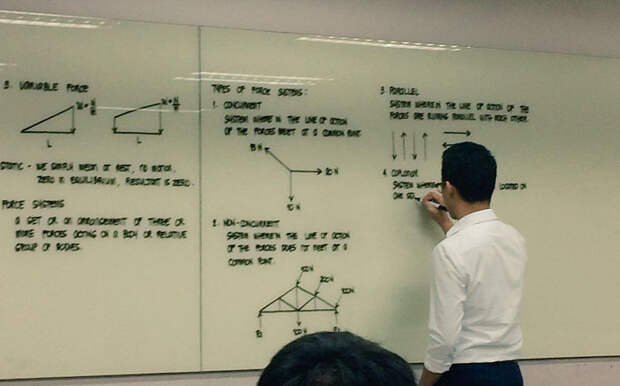 3. VARIABLE FORCE
L
L
STATIC - WE SIMPLY MEAN AT REST, NO MOTION,
ZERO IN EQUILIBRIUM, RESULTANT IS ZERO.
FORCE SYSTEMS
A SET OR AN ARRANGEMENT OF THREE OR
MORE FORCES ACTING ON A BODY OR RELATIVE
GROUP OF BODIES.
TYPES OF FORCE SYSTEMS:
1. CONCURRENT
SYSTEM WHEREIN THE LINE OF ACTION
OF THE FORCES MEET AT A COMMON POINT.
2. NON-CONCURRENT
SYSTEM WHEREIN THE LINE OF ACTION
OF THE FORCES DOES NOT MEET AT A
COMMON POINT.
3. PARALLEL
SYSTEM WHEREIN THE LINE OF ACTION OF THE
FORCES ARE RUNNING PARALLEL WITH EACH OTHER.
4. COPLANAR
SYSTEM LOCATED ON
ONE